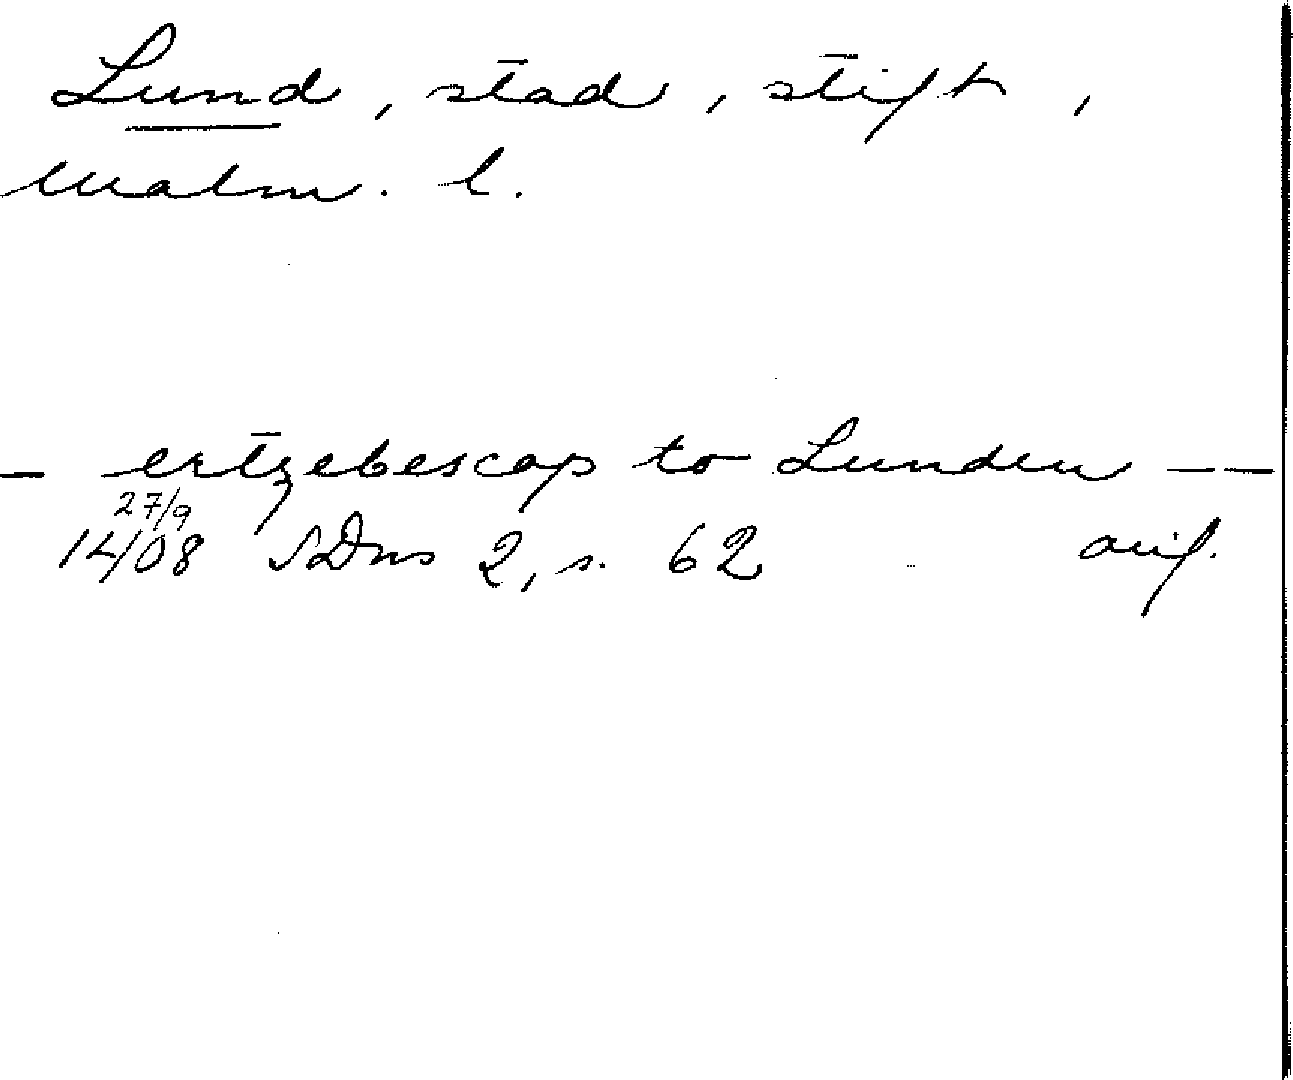 Lund, stad, stift,
Malm. l.
— ertzebescop to Lunden ——
27/9
1408 SDns 2, s. 62 avil.